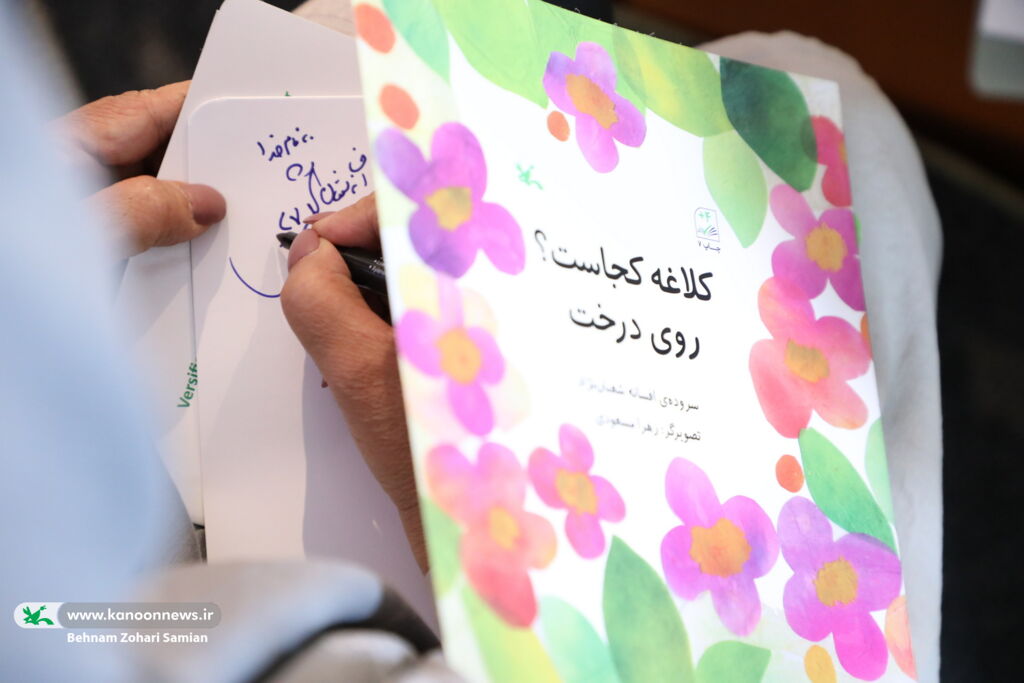 به نام خدا
+۴
چاپ ۷
کلاغه کجاست؟
روی درخت
سروده‌ی افسانه شعبان‌نژاد
تصویرگر: زهرا مسعودی
Versifi
www.kanoonnews.ir
Behnam Zohari Samian